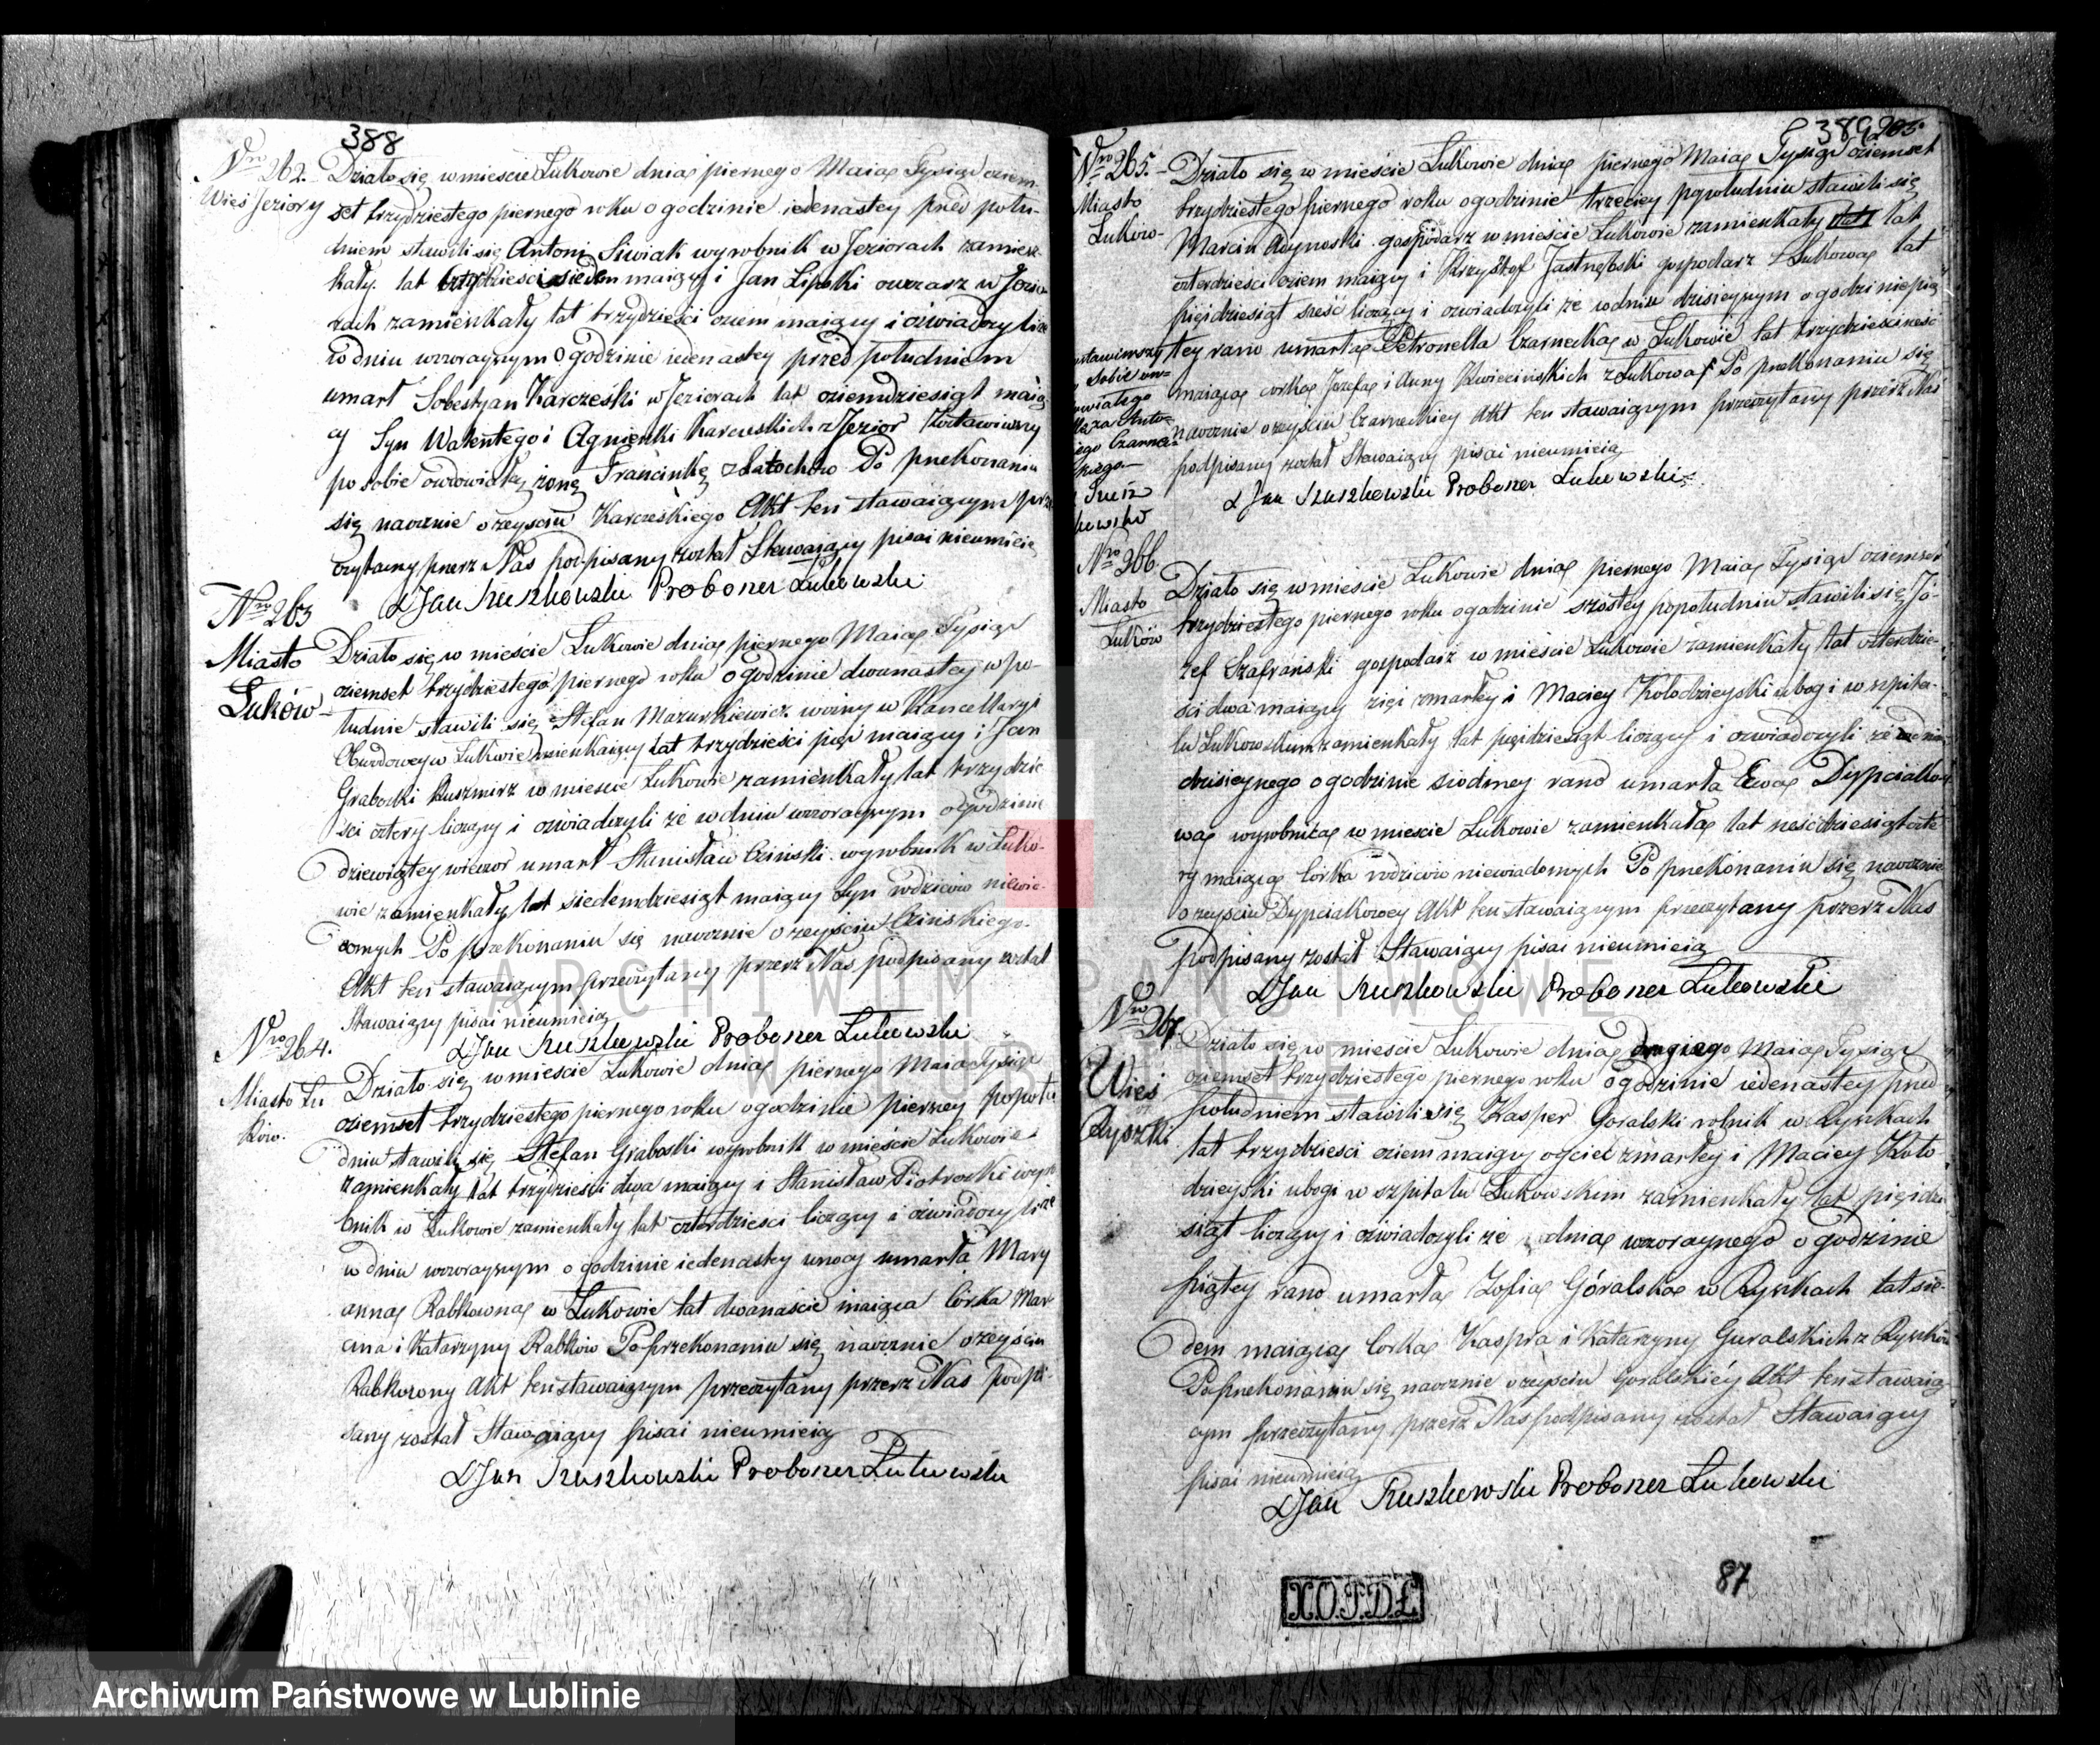 388
Nro 262.
Wieś Jeziory
Działo się w mieście Łukowie dnia pierwszego Maia Tysiąc ośem-
set trzydziestego pierwszego roku o godzinie iedenastey przed połu-
dniem stawili się Antoni Siwiak wyrobnik w Jeziorach zamiesz-
kały lat trzydzieści siedem maiący i Jan Lipski owczarz w Jezio-
rach zamieszkały lat trzydzieści osiem maiący i oświadczyli że
w dniu wczorayszym o godzinie iedenastey przed południem
umarł Sobestyan Karczeski w Jeziorach lat osiemdziesiąt maią-
cy Syn Walentego i Agnieszki Karczeskich z Jezior Zostawiwszy
po sobie owdowiałą żonę Franciszkę z Po przekonaniu
się naocznie o zeyściu Karczeskiego Akt ten stawaiącym prze-
czytany przez Nas podpisany został Stawaiący pisać nieumieią
X Jan Kruszkowski Proboszcz Łukowski
Nro 263
Miasto
Łuków
Działo się w mieście Łukowie dnia pierwszego Maia Tysiąc
ośemset trzydziestego pierwszego roku o godzinie dwunastey w po-
łudnie stawili się Stefan Mazurkiewicz woźny w Kancellaryi
Obwodowey w Łukowie lat trzydzieści pięć maiący i Jan
Grabowski Kuśnierz w mieście Łukowie zamieszkały lat trzydzie-
ści cztery liczący i oświadczyli że w dniu wczorayszym o godzinie
dziewiątey wieczor umarł Stanisław Cziński wyrobnik w Łuko-
wie zamieszkały lat siedemdziesiąt maiący Syn rodziców niewia-
domych Po przekonaniu się naocznie o zeyściu Czińskiego
Akt ten stawaiącym przeczytany przez Nas podpisany został
Stawaiący pisać nieumieią
X Jan Kruszkowski Proboszcz Łukowski
Nro 264.
Miasto Łu
ków.
Działo się w mieście Łukowie dnia pierwszego Maia Tysiąc
ośemset trzydziestego pierwszego roku o godzinie pierwszey popołu-
dniu stawili się Stefan Graboski wyrobnik w mieście Łukowie
zamieszkały lat trzydzieści dwa maiący i Stanisław Piotroski wyro-
bnik w Łukowie zamieszkały lat czterdzieści liczący i oświadczyli że
w dniu wczorayszym o godzinie iedenastey wnocy umarła Mary
anna Rabkowna w Łukowie lat dwanaście maiąca Córka Mar-
cina i Katarzyny Rabków Po przekonaniu się naocznie o zeyściu
Rabkowny Akt ten stawaiącym przeczytany przez Nas podpi-
sany został Stawaiący pisać nieumieią
X Jan Kruszkowski Proboszcz Łukowski
389
Nro 265.
Miasto
Łukow-
Działo się w mieście Łukowie dnia pierwszego Maia Tysiąc ośemset
trzydziestego pierwszego roku o godzinie trzeciey popołudniu stawili się
Marcin gospodarz w mieście Łukowie zamieszkały lat
czterdzieści osiem maiący i Krzysztof Jastrzębski gospodarz z Łukowa lat
pięćdziesiąt sześć liczący i oświadczyli że w dniu dzisieyszym o godzinie pią
tey rano umarła Petronella Czarnecka w Łukowie lat trzydzieści sześć
maiąca corka Jozefa i Anny Kwiecińskich z Łukowa Po przekonaniu się
naocznie o zeyściu Czarneckiey Akt ten stawaiącym przeczytany przez Nas
podpisany został Stawaiący pisać nieumieią
X Jan Kruszkowski Proboszcz Łukowski
Nro 266.
Miasto
Łuków
Działo się w mieście Łukowie dnia pierwszego Maia Tysiąc ośemset
trzydziestego pierwszego roku o godzinie szóstey popołudniu stawili się Jó-
zef Szafrański gospodarz w mieście Łukowie zamieszkały lat czterdzie-
ści dwa maiący zięć zmarłey i Maciey Kołodzieyski ubogi w szpita-
lu Łukowskim zamieszkały lat pięćdziesiąt liczący i oświadczyli że w dniu
dzisieyszego o godzinie siodmey rano umarła Ewa Dypciako-
wa wyrobnica w mieście Łukowie zamieszkała lat sześćdziesiąt czte
ry maiąca Corka rodziców niewiadomych Po przekonaniu się naocznie
o zeyściu Dypciakowey Akt ten stawaiącym przeczytany przez Nas
podpisany został Stawaiący pisać nieumieią
X Jan Kruszkowski Proboszcz Łukowski
Nro 267.
Wieś
Ryszki
Działo się w mieście Łukowie dnia drugiego Maia Tysiąc
ośemset trzydziestego pierwszego roku o godzinie iedenastey przed
południem stawili się Kasper Goralski rolnik w Ryszkach
lat trzydzieści osiem maiący oyciec zmarłey i Maciey Koło
dzieyski ubogi w szpitalu Łukowskim zamieszkały lat pięćdzie
siąt liczący i oświadczyli że dnia wczorayszego o godzinie
piątey rano umarła Zofia Góralska w Ryszkach lat sie-
dem maiąca Corka Kaspra i Katarzyny Guralskich z Ryszków
Po przekonaniu się naocznie o zeyściu Goralskiéy Akt ten stawaią-
cym przeczytany przez Nas podpisany został Stawaiący
pisać nieumieią
X Jan Kruszkowski Proboszcz Łukowski
87
X.O.P.D.Ł
ARCHIWUM PAŃSTWOWE
W LUBLINIE
Archiwum Państwowe w Lublinie